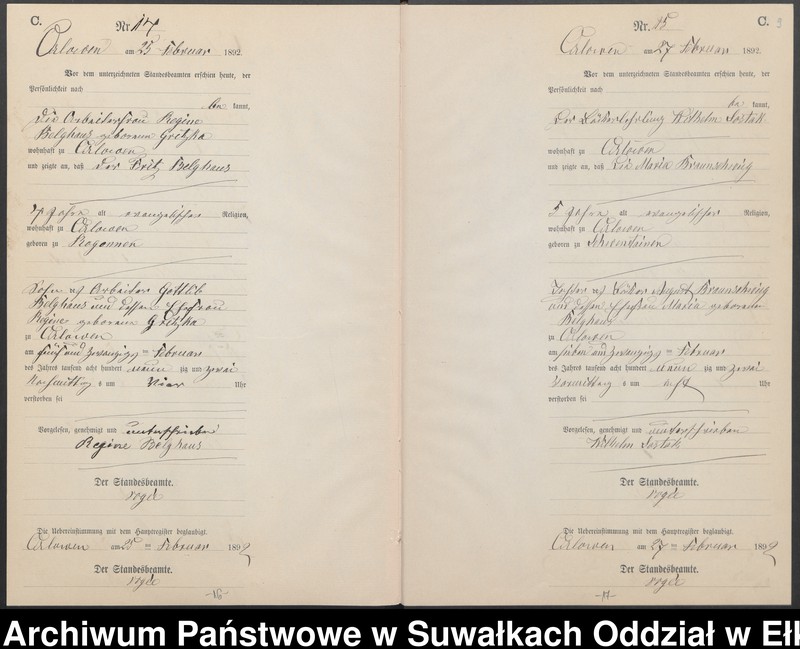 C.
Nr. 14
Orlowen am 25 Februar 1892.
Vor dem unterzeichneten Standesbeamten erschien heute, der
Persönlichkeit nach
be kannt,
die Arbeiterfrau Regine
Belghaus geborene Gretzka
wohnhaft zu Orlowen
und zeigte an, daß der Fritz Belghaus
7 Jahre alt evangelischer Religion,
wohnhaft zu Orlowen
geboren zu Rogonnen
Sohn des Arbeiter Gottlieb
Belghaus und dessen Ehefrau
Regine geborene Gretzka
zu Orlowen
am fünf und zwanzigsten Februar
des Jahres tausend acht hundert neun zig und zwei
Nachmittag s um vier Uhr
verstorben sei
Vorgelesen, genehmigt und unterschrieben
Regine Belghaus
Der Standesbeamte.
Die Uebereinstimmung mit dem Hauptregister beglaubigt.
Orlowen am 25 ten Februar 1892
Der Standesbeamte.
-16-
C. 9
Nr. 15
Orlowen am 27 Februar 1892.
Vor dem unterzeichneten Standesbeamten erschien heute, der
Persönlichkeit nach
be kannt,
der Bäckerlehrling Wilhelm
wohnhaft zu Orlowen
und zeigte an, daß die Maria Braunschweig
5 Jahre alt evangelischer Religion,
wohnhaft zu Orlowen
geboren zu Schwentainen
Tochter des Bäcker August Braunschweig
und dessen Ehefrau Maria geborene
Belghaus
zu Orlowen
am sieben und zwanzigsten Februar
des Jahres tausend acht hundert neun zig und zwei
Vormittag s um acht Uhr
verstorben sei
Vorgelesen, genehmigt und unterschrieben
Wilhelm
Der Standesbeamte.
Die Uebereinstimmung mit dem Hauptregister beglaubigt.
Orlowen am 27 ten Februar 1892
Der Standesbeamte.
-17-
Archiwum Państwowe w Suwałkach Oddział w Eł